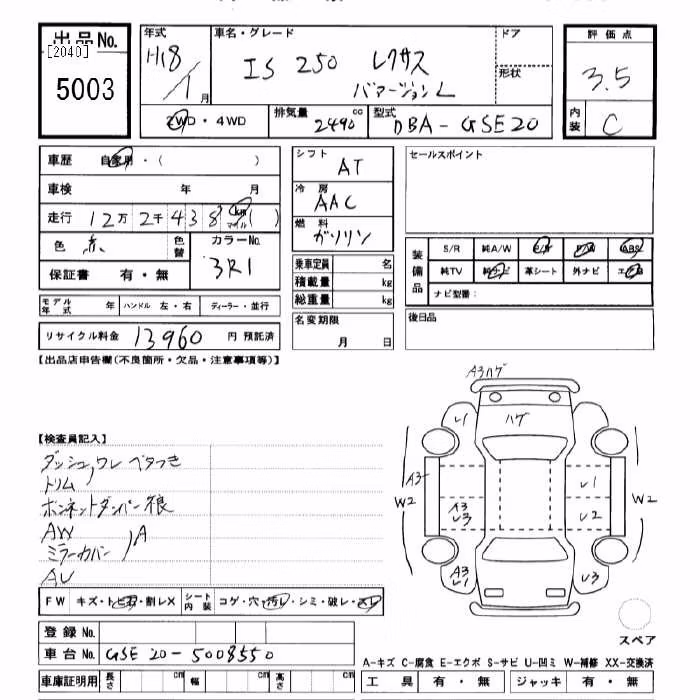 出品No.
[2040]
5003
H18/1月
車名・グレード
IS 250 レクサス
バァージョンL
ドア
形状
評価点
3.5
内装
C
2WD・4WD
排気量 2490 cc
型式 DBA-GSE20
車歴 自家用・( )
車検 年 月
走行 12万2千438 km マイル ( )
色 赤 色替
カラーNo. 3R1
保証書 有・無
モデル年式 年 ハンドル 左・右 ディーラー・並行
リサイクル料金 13960 円 預託済
シフト AT
冷房 AAC
燃料 ガソリン
乗車定員 名
積載量 kg
総重量 kg
名変期限
月 日
セールスポイント
装備品
S/R 純A/W P/S P/W ABS
純TV 純ナビ 革シート 外ナビ エアB
ナビ型番：
後日品
【出品店申告欄(不良箇所・欠品・注意事項等)】
【検査員記入】
ダッシュワレ ベタつき
トリム
ボンネットダンパー不良
AW
ミラーカバー A
AU
FW キズ・トビ石・割レX
シート内装 コゲ・穴・汚レ・シミ・破レ・スレ
登録No.
車台No. GSE20-5008550
車庫証明用 長さ cm 幅 cm 高さ cm
A3ハゲ
レ1
ハゲ
A3
W2
レ1
W2
A3
レ3
レ2
A3
レ1
レ3
スペア
A-キズ C-腐食 E-エクボ S-サビ U-凹ミ W-補修 XX-交換済
工具 有・無 ジャッキ 有・無